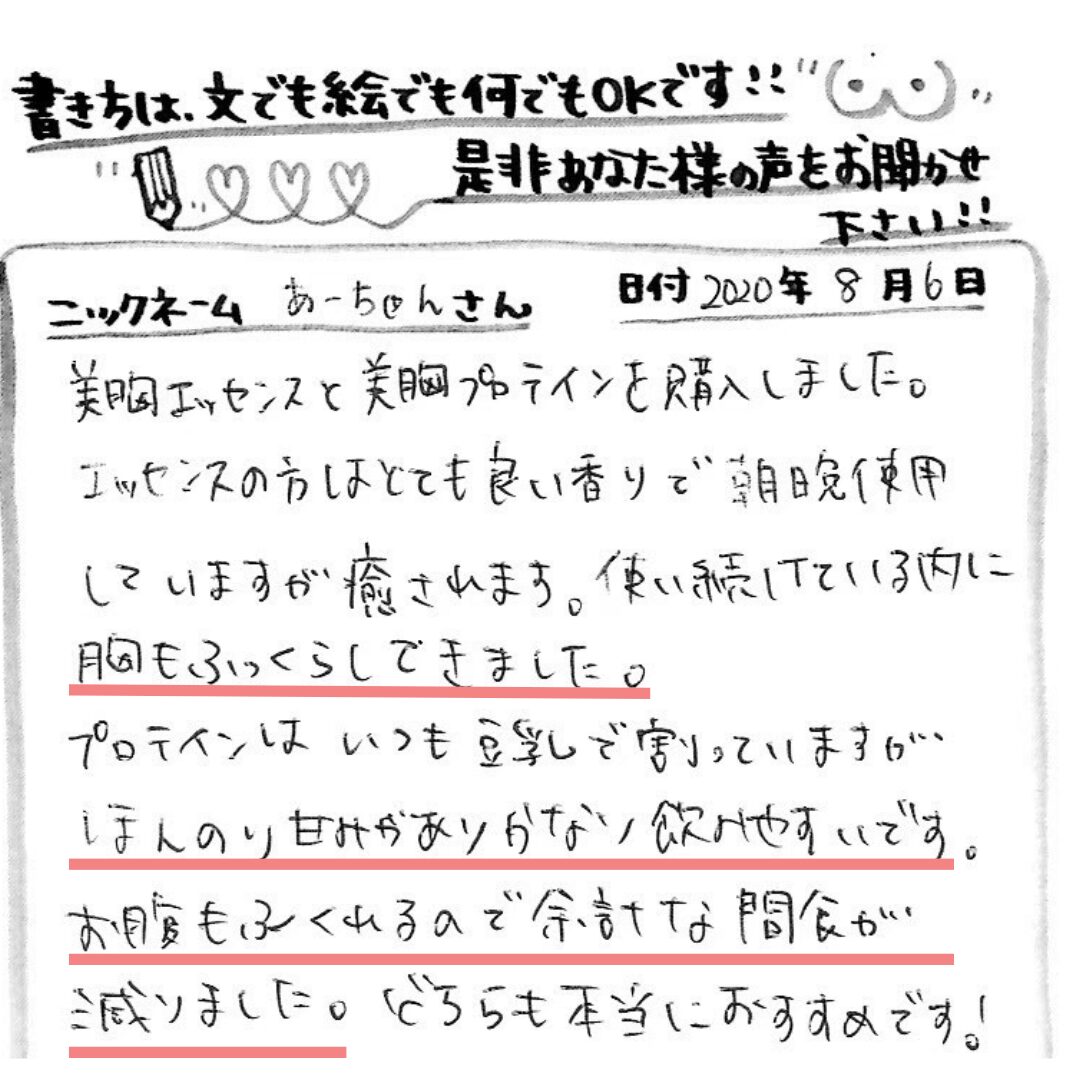 書き方は、文でも絵でも何でもOKです!!
是非あなた様の声をお聞かせ
下さい!!
ニックネーム あーちゃんさん 日付 2020年 8月6日
美胸エッセンスと美胸プロテインを購入しました。
エッセンスの方はとても良い香りで朝晩使用
していますが癒されます。使い続けている内に
胸もふっくらしてきました。
プロテインはいつも豆乳で割っていますが
ほんのり甘みがありかなり飲みやすいです。
お腹もふくれるので余計な間食が
減りました。どちらも本当におすすめです!